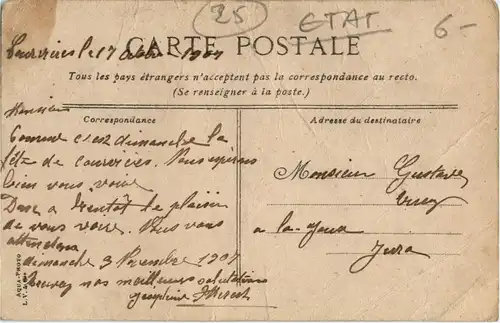 25
ETAT
6-
CARTE POSTALE
le 17 1907
Tous les pays étrangers n'acceptent pas la correspondance au recto.
(Se renseigner à la poste.)
Correspondance
Monsieur
Comme c'est dimanche la
fête de courrières. Nous espérons
bien vous voire
Donc a bientôt le plaisir
de vous voire. Nous vous
attendons
dimanche 3 Novembre 1907
Recevez nos meilleurs salutations
Joséphine
Adresse du destinataire
Monsieur Gustave
a la-
Jura
AQUA-PHOTO
L.V. & Cie